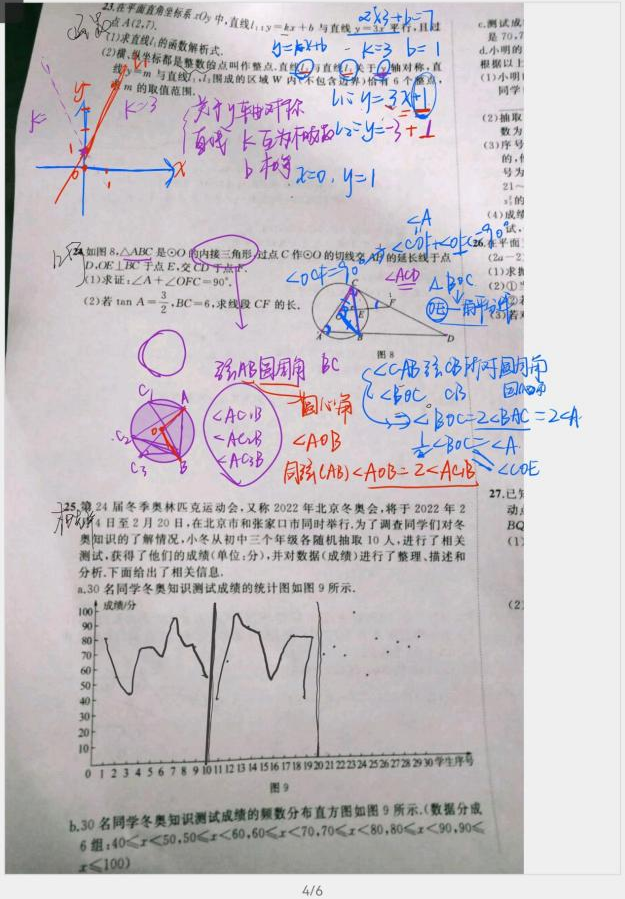 23.在平面直角坐标系xOy中,直线l₁:y=kx+b与直线y=3x平行,且过
点A(2,7).
(1)求直线l₁的函数解析式.
(2)横、纵坐标都是整数的点叫作整点.直线l₂与直线l₁关于y轴对称,直
线y=m与直线l₁,l₂围成的区域W内(不包含边界)恰有6个整点,
求m的取值范围.
2×3+b=7
y=kx+b k=3 b=1
l₁=y=3x+1
l₂=y=-3+1
k=3
关于y轴对称
直线 k互为相反数
b相等
x=0, y=1
y
x
0
1
24.如图8,△ABC是⊙O的内接三角形,过点C作⊙O的切线交AB的延长线于点
D,OE⊥BC于点E,交CD于点F.
(1)求证:∠A+∠OFC=90°.
(2)若tan A=3/2,BC=6,求线段CF的长.
∠A
∠COF+∠OFC=90°
∠OCF=90°
∠ACD
△BOC
OE
C
E
F
A
B
D
图8
弦AB圆周角 BC
圆心角
∠AC₁B
∠AC₂B
∠AC₃B
∠AOB
同弦(AB)∠AOB=2∠AC₁B
C₁
A
C₂
C₃
B
∠CAB弦CB所对圆周角
∠BOC CB 圆心角
⇒∠BOC=2∠BAC=2∠A
½∠BOC=∠A
∠COE
25.第24届冬季奥林匹克运动会,又称2022年北京冬奥会,将于2022年2
月4日至2月20日,在北京市和张家口市同时举行.为了调查同学们对冬
奥知识的了解情况,小冬从初中三个年级各随机抽取10人,进行了相关
测试,获得了他们的成绩(单位:分),并对数据(成绩)进行了整理、描述和
分析.下面给出了相关信息.
a.30名同学冬奥知识测试成绩的统计图如图9所示.
成绩/分
100
90
80
70
60
50
40
30
20
10
0 1 2 3 4 5 6 7 8 9 10 11 12 13 14 15 16 17 18 19 20 21 22 23 24 25 26 27 28 29 30 学生序号
图9
b.30名同学冬奥知识测试成绩的频数分布直方图如图9所示.(数据分成
6组:40≤x<50,50≤x<60,60≤x<70,70≤x<80,80≤x<90,90≤
x≤100)
c.测试成
是70,7
d.小明的
根据以上
(1)小明
同学
(2)抽取
数为
(3)序号
的,
号为
21~
(4)成绩
试,
26.在平面
(2a-2
(1)求抛
(2)①
27.已知
动点
BQ
(1)
(2)
4/6